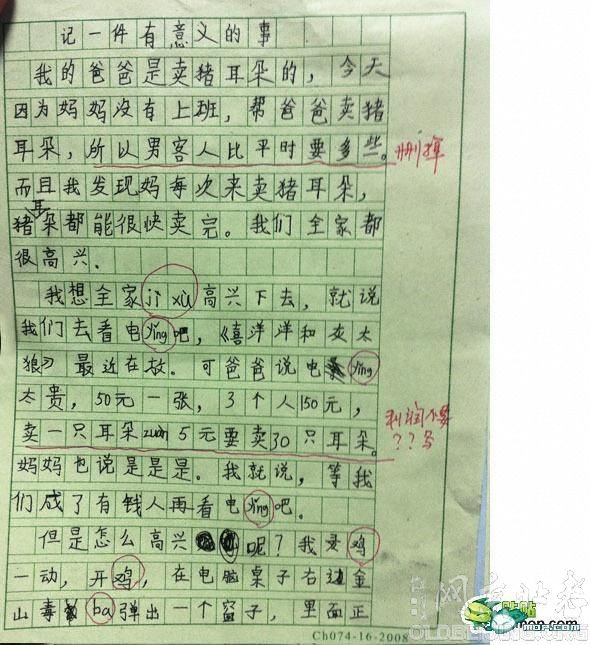 记一件有意义的事
我的爸爸是卖猪耳朵的，今天
因为妈妈没有上班，帮爸爸卖猪
耳朵，所以男客人比平时要多些。
删掉
而且我发现妈每次来卖猪耳朵，
猪耳朵都能很快卖完。我们全家都
很高兴.
我想全家jì xù高兴下去，就说
我们去看电yǐng吧，《喜洋洋和灰太
狼》最近在放。可爸爸说电yǐng
太贵，50元一张，3个人150元，
卖一只耳朵zuàn 5元要卖30只耳朵。
利润
??多
妈妈也说是是是。我就说，等我
们成了有钱人再看电yǐng吧。
但是怎么高兴呢？我灵鸡
一动，开鸡，在电脑桌子右边金
山毒ba弹出一个窗子，里面正
Ch074-16-2008